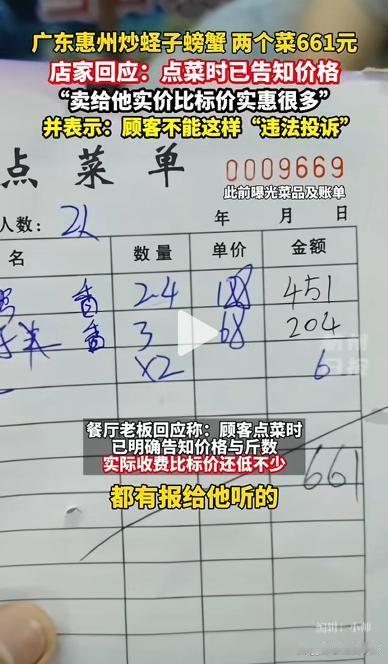 广东惠州炒蛏子螃蟹 两个菜661元
店家回应：点菜时已告知价格
“卖给他实价比标价实惠很多”
并表示：顾客不能这样“违法投诉”
点菜单 0009669
此前曝光菜品及账单
人数： 2人 年 月 日
名 数量 单价 金额
香 2-4 188 451
香 3 68 204
X2 6
餐厅老板回应称：顾客点菜时
已明确告知价格与斤数
实际收费比标价还低不少
661
都有报给他听的
编辑：小帅